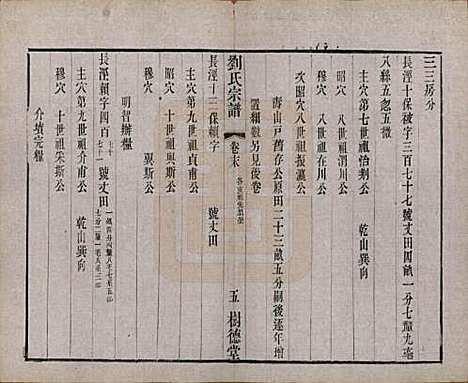 三三房分
長涇十保被字三百七十七號丈田四畝一分七釐九毫
八絲五忽五微
主穴第七世祖治剩公　乾山巽向
昭穴　八世祖渭川公
穆穴　八世祖在川公
次昭穴　八世祖振瀛公
壽山戸舊存公原田二十三畝五分嗣後逐年增
置細數另見後卷
劉氏宗譜
卷末
五
樹德堂
長涇十二保賴字　號丈田
主穴第九世祖貞甫公
昭穴　十世祖興斯公
穆穴　與斯公
明智辦糧
長涇賴字四百七十七十一號丈田
主穴第九世祖介甫公　乾山巽向
穆穴　十世祖朱斯公
介墳完糧